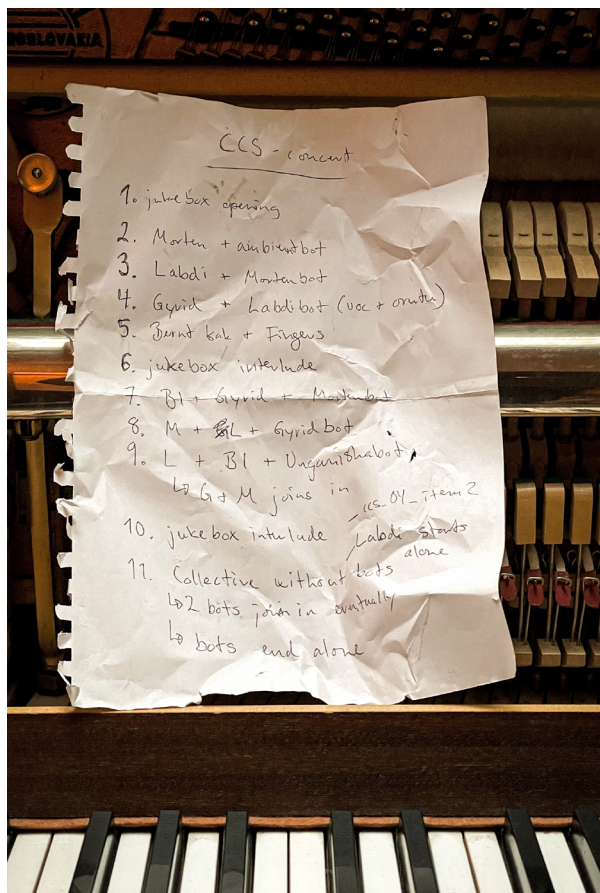 OSLOVAKIA
CCS - concert
1. jukebox opening
2. Morten + ambientbot
3. Labdi + Mortenbot
4. Gyrid + Labdibot (voc + orutu)
5. Bernt Isak + Fingers
6. jukebox interlude
7. BI + Gyrid + Mortenbot
8. M + L + Gyridbot
9. L + BI + Ungamishabot
↳ G + M joins in
10. jukebox interlude
ccs_04_item2
Labdi starts
alone
11. Collective without bots
↳ 2 bots join in eventually
↳ bots end alone